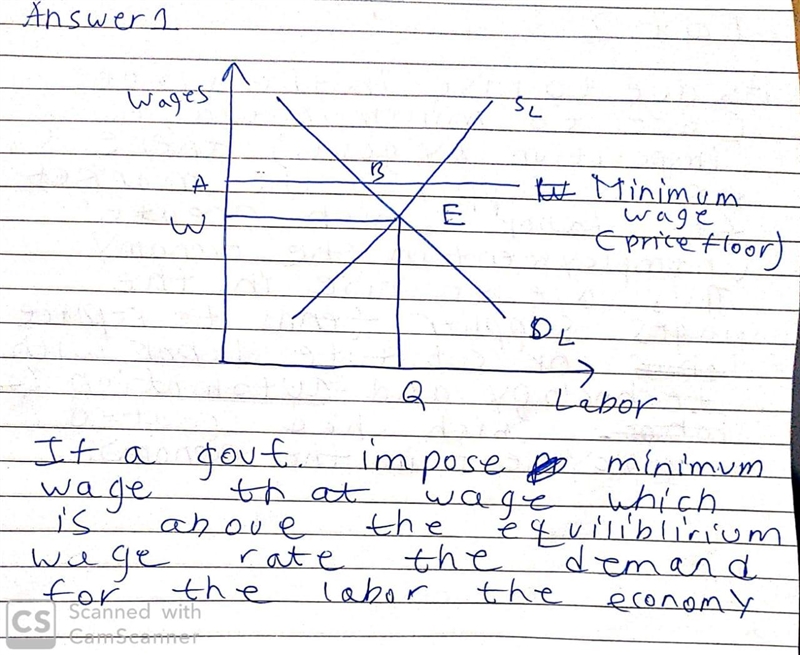 Answer 1
Wages
SL
B
A
Minimum
wage
(price floor)
W
E
DL
Q
Labor
If a govt. impose minimum
wage that wage which
is above the equiliblirium
wage rate the demand
for the labor the economy
CS Scanned with
CamScanner